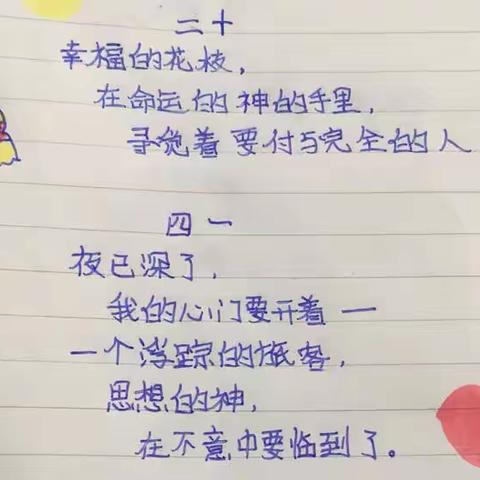 二十
幸福的花枝，
在命运的神的手里，
寻觉着要付与完全的人
四一
夜已深了，
我的心门要开着 一
一个浮踪的旅客，
思想的神，
在不意中要临到了。